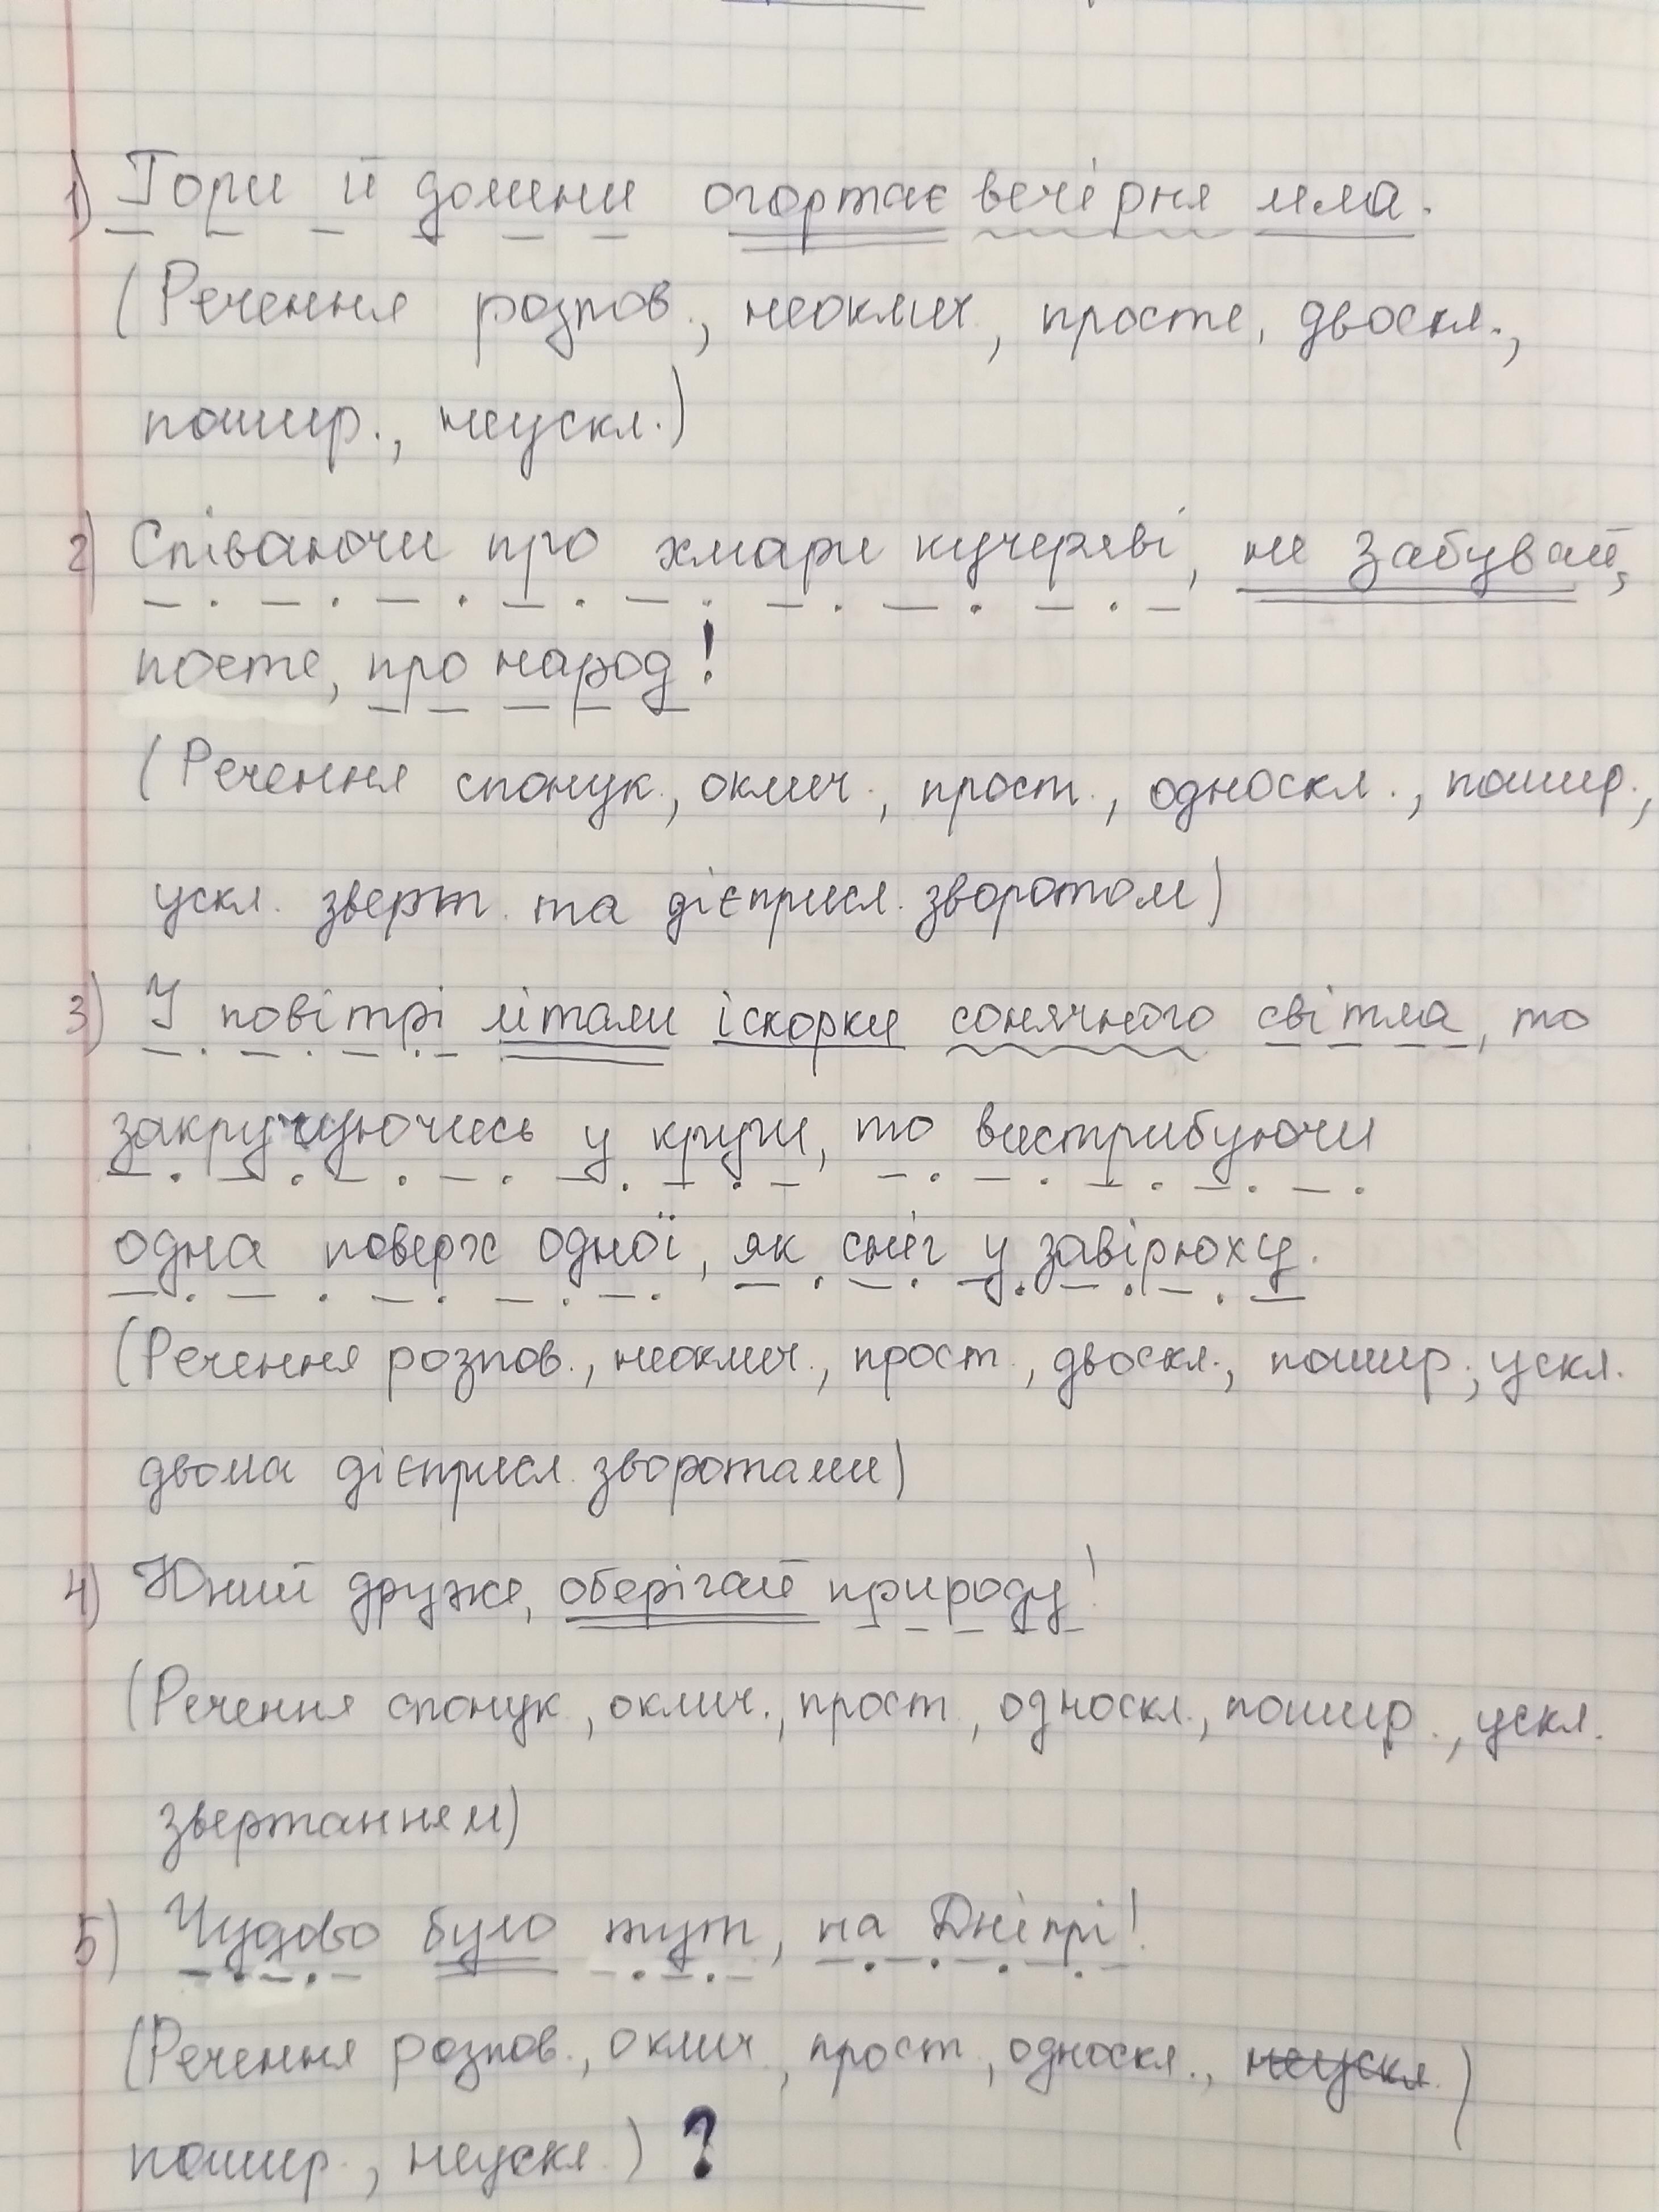 1) Гори й долини огортає вечірня мла.
(Речення розпов., неоклич., просте, двоскл.,
пошир., неускл.)
2) Співаючи про хмари кучеряві, не забувай,
поете, про народ!
(Речення спонук., оклич., прост., односкл., пошир.,
ускл. зверт. та дієприсл. зворотом)
3) У повітрі літали іскорки сонячного світла, то
закручуючись у круги, то вистрибуючи
одна поверх одної, як сніг у завірюху.
(Речення розпов., неоклич., прост., двоскл., пошир., ускл.
двома дієприсл. зворотами)
4) Юний друже, оберігай природу!
(Речення спонук., оклич., прост., односкл., пошир., ускл.
звертанням)
5) Чудово було тут, на Дніпрі!
(Речення розпов., оклич., прост., односкл., неускл.)
пошир., неускл.) ?